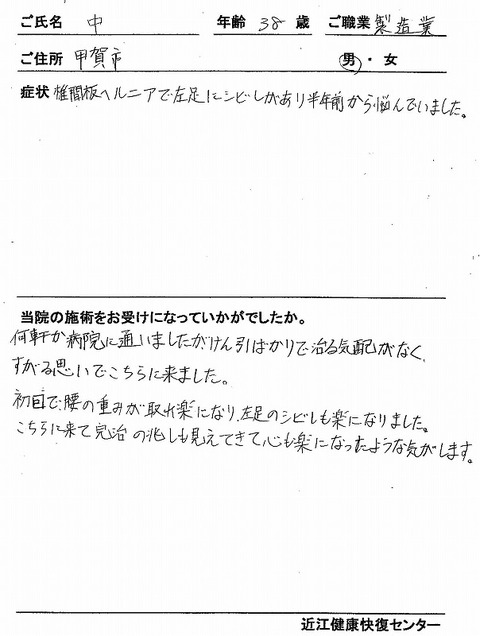 ご氏名 中 年齢 38 歳 ご職業 製造業
ご住所 甲賀市 男・女
症状 椎間板ヘルニアで左足にシビレがあり半年前から悩んでいました。
当院の施術をお受けになっていかがでしたか。
何軒か病院に通いましたがけん引ばかりで治る気配がなく、
すがる思いでこちらに来ました。
初回で腰の重みが取れ楽になり、左足のシビレも楽になりました。
こちらに来て完治の兆しも見えてきて心も楽になったような気がします。
近江健康快復センター